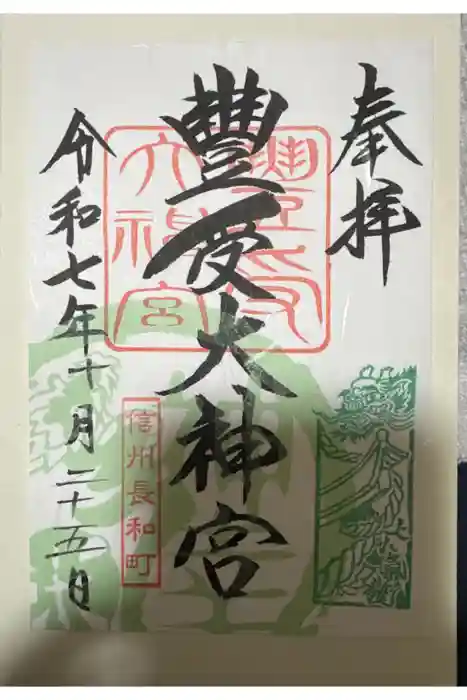 奉拝
豊受大神宮
信州長和町
令和七年十月二十五日